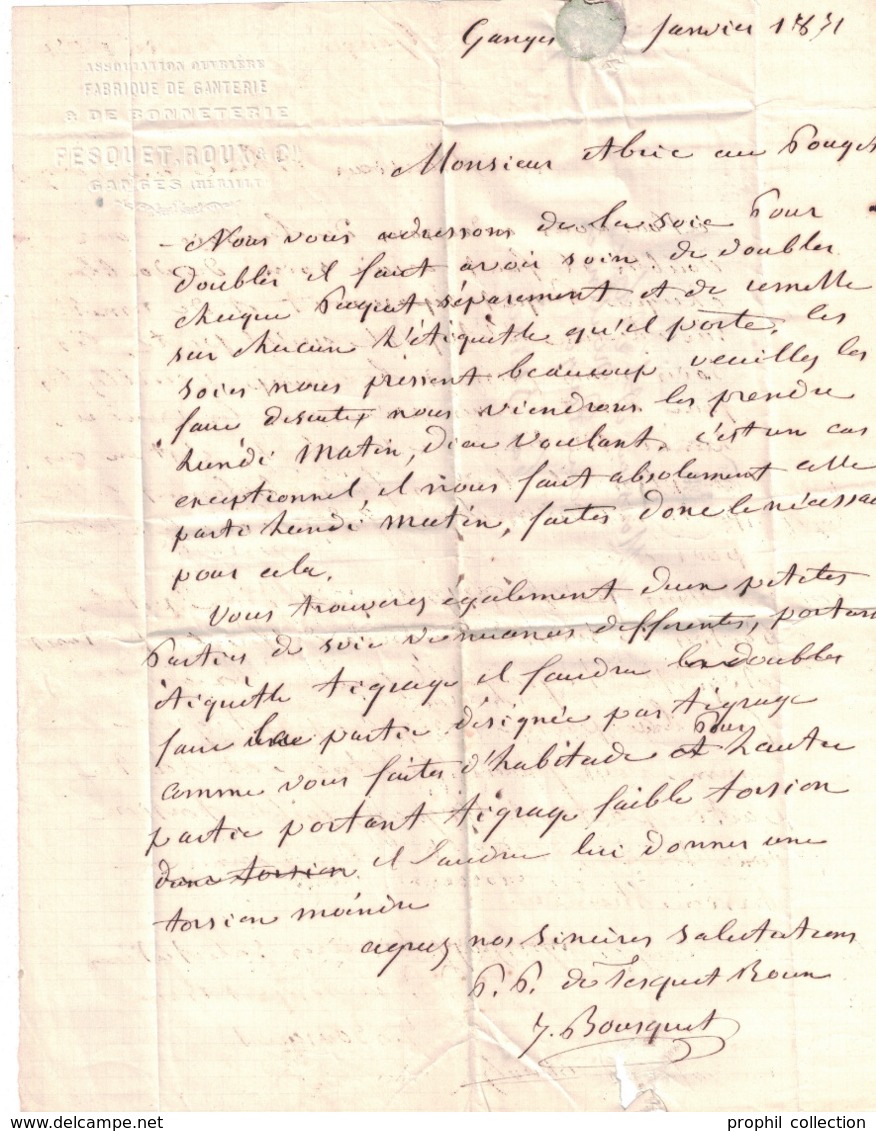 Ganges Janvier 1871
ASSOCIATION OUVRIÈRE
FABRIQUE DE GANTERIE
& DE BONNETERIE
PESQUET, ROUX & Cie
GANGES (HÉRAULT)
Monsieur Abric au
- Nous vous adressons de la soie Pour
doubler il faut avoir soin de doubler
chaque Paquet séparement et de remettre
sur chacun l'étiquette qu'il porte, les
soies nous pressent beaucoup veuillez les
faire de suite nous viendrons les prendre
Lundi Matin, dieu Voulant, c'est un cas
exceptionnel, il nous faut absolument cette
partie Lundi Matin, faites donc le nécessai
pour cela.
Vous trouverez également deux petites
Parties de soie nuances differentes, portant
étiquette tigrage il faudra les doubler
faire la partie désignée par tigrage
comme vous faites d'habitude et Pour l'autre
partie portant tigrage faible torsion
il faudra lui donner une
torsion moindre
agréez nos sincères salutations
P. P. de Pesquet Roux
J. Bousquet
prophil collection